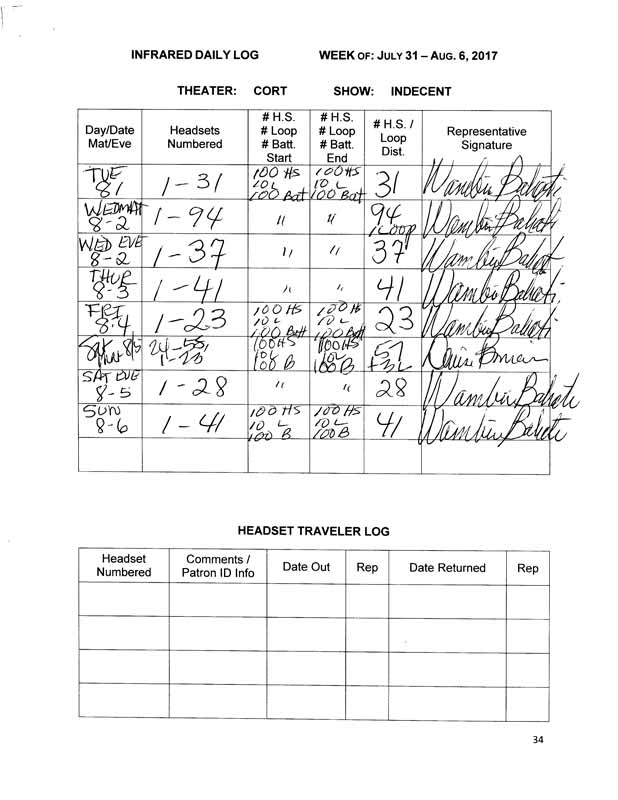 INFRARED DAILY LOG WEEK OF: JULY 31 – AUG. 6, 2017
THEATER: CORT SHOW: INDECENT
Day/Date Mat/Eve Headsets Numbered # H.S. # Loop # Batt. Start # H.S. # Loop # Batt. End # H.S. / Loop Dist. Representative Signature
TUE 8/1 1-31 100 HS 10 L 100 Bat 100 HS 10 L 100 Bat 31 Wambui Bahati
WED MAT 8-2 1-94 " " 94 1 Loop Wambui Bahati
WED EVE 8-2 1-37 " " 37 Wambui Bahati
THUR 8-3 1-41 " " 41 Wambui Bahati
FRI 8-4 1-23 100 HS 10 L 100 Batt 100 HS 10 L 100 Batt 23 Wambui Bahati
Sat Mat 8/5 1-23 100 HS 10L 100 B 100 HS 10L 100 B
SAT EVE 8-5 1-28 " " 28 Wambui Bahati
SUN 8-6 1-41 100 HS 10 L 100 B 100 HS 10 L 100 B 41 Wambui Bahati
HEADSET TRAVELER LOG
Headset Numbered Comments / Patron ID Info Date Out Rep Date Returned Rep
34